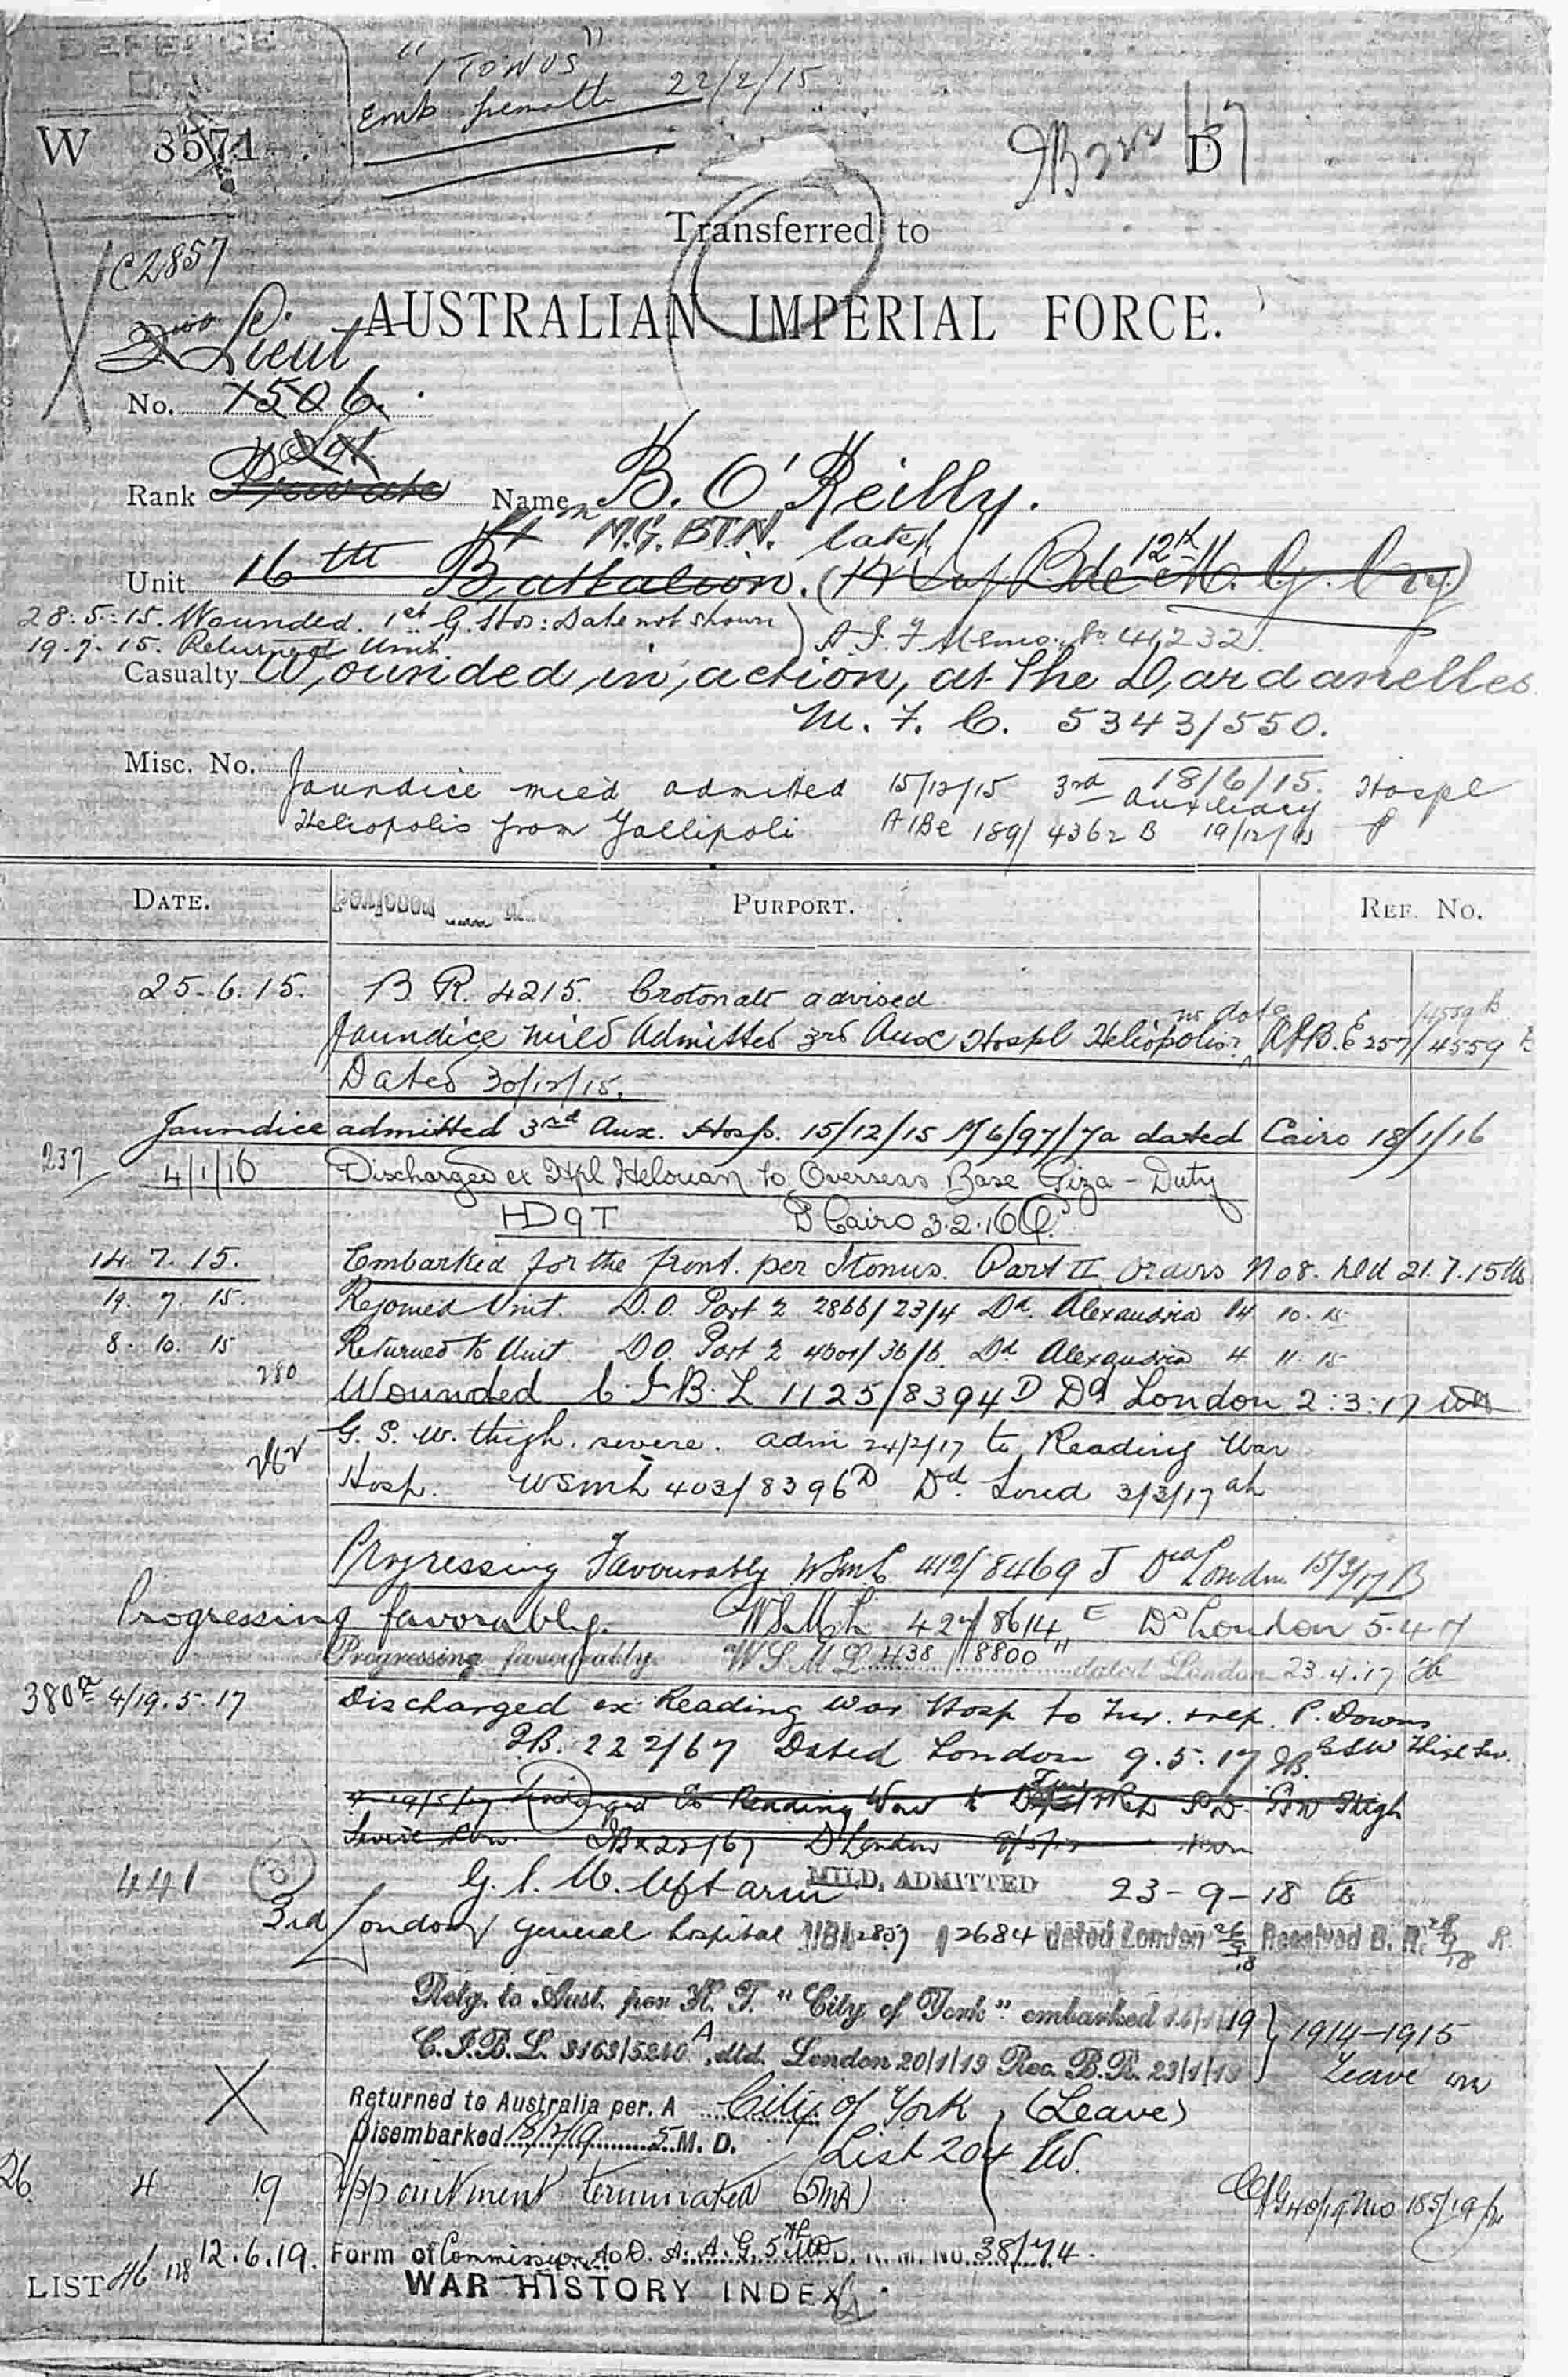 DEFENCE
"ITONUS"
Emb fremantle 22/2/15
W 3571
D
C2857
Transferred to
AUSTRALIAN IMPERIAL FORCE.
Lieut
No. 1506.
Sgt
Rank Private Name B. O'Reilly.
M.G. BTN. late
Unit 16th Battalion. (12th M. G. Coy)
28.5.15. Wounded. 1st G. Hos: Date not shown
19.7.15. Returned Unit
A.I.F. Memo. No 41,232.
Casualty Wounded in action, at the Dardanelles
M. F. C. 5343/550.
18/6/15.
Misc. No.
Jaundice mild admitted 15/12/15 3rd Auxiliary Hospl
Heliopolis from Gallipoli AIBE 189/4362 B 19/12/15
DATE. PURPORT. REF. NO.
25.6.15. B. R. 4215. Crotonate advised
no date
Jaundice mild Admitted 3rd Aux Hospl Heliopolis. AIB.E 257/4559
Dated 30/12/15.
Jaundice admitted 3rd Aux. Hosp. 15/12/15 M6/97/7a dated Cairo 18/1/16
237
4/1/16 Discharged ex Hpl Helouan to Overseas Base Giza - Duty
HDQT D Cairo 3.2.16
14. 7. 15. Embarked for the front. per Itonus. Part II orders No 8. 21.7.15
19. 7. 15. Rejoined Unit. D.O. Part 2 2866/23/4 Dd. Alexandria 14 10. 15
8. 10. 15 Returned to Unit. DO. Part 2 4001/36/6. Dd Alexandria 4 11. 15
280 Wounded C.I.B.L 1125/8394D Dd London 2:3:17
G. S. W. thigh. severe. adm 24/2/17 to Reading War
Hosp. WSML 403/8396D Dd. Lond 3/3/17
Progressing Favourably WSML 412/8469 J Dd London 15/3/17 B
Progressing favorably. WSML 427/8614 E Dd London 5-4-17
Progressing favourably. W S M L 438/8800 H dated London 23.4.17
380 4/19.5.17 Discharged ex Reading War Hosp to Fur. &rep. P. Downs
JB. 222/67 Dated London 9.5.17 JB. GSW Thigh Sev.
441 G. S. W. left arm MILD, ADMITTED 23-9-18 to
3rd London general hospital 2857 12684 dated London 26/9/18 Received B. R. 28/9/18 R.
Retg. to Aust. per H. T. "City of York" embarked 19 } 1914-1915
C.I.B.L. 3163/5240 A, dtd. London 20/1/19 Rec. B.R. 23/1/19 } Leave
Returned to Australia per. A City of York (Leave)
Disembarked 5 M. D. List 204
26 4 19 Appointment terminated (5MD)
12.6.19. Form of Commission to D. A. A. G. 5th M.D. No. 38/74.
LIST 46 WAR HISTORY INDEX